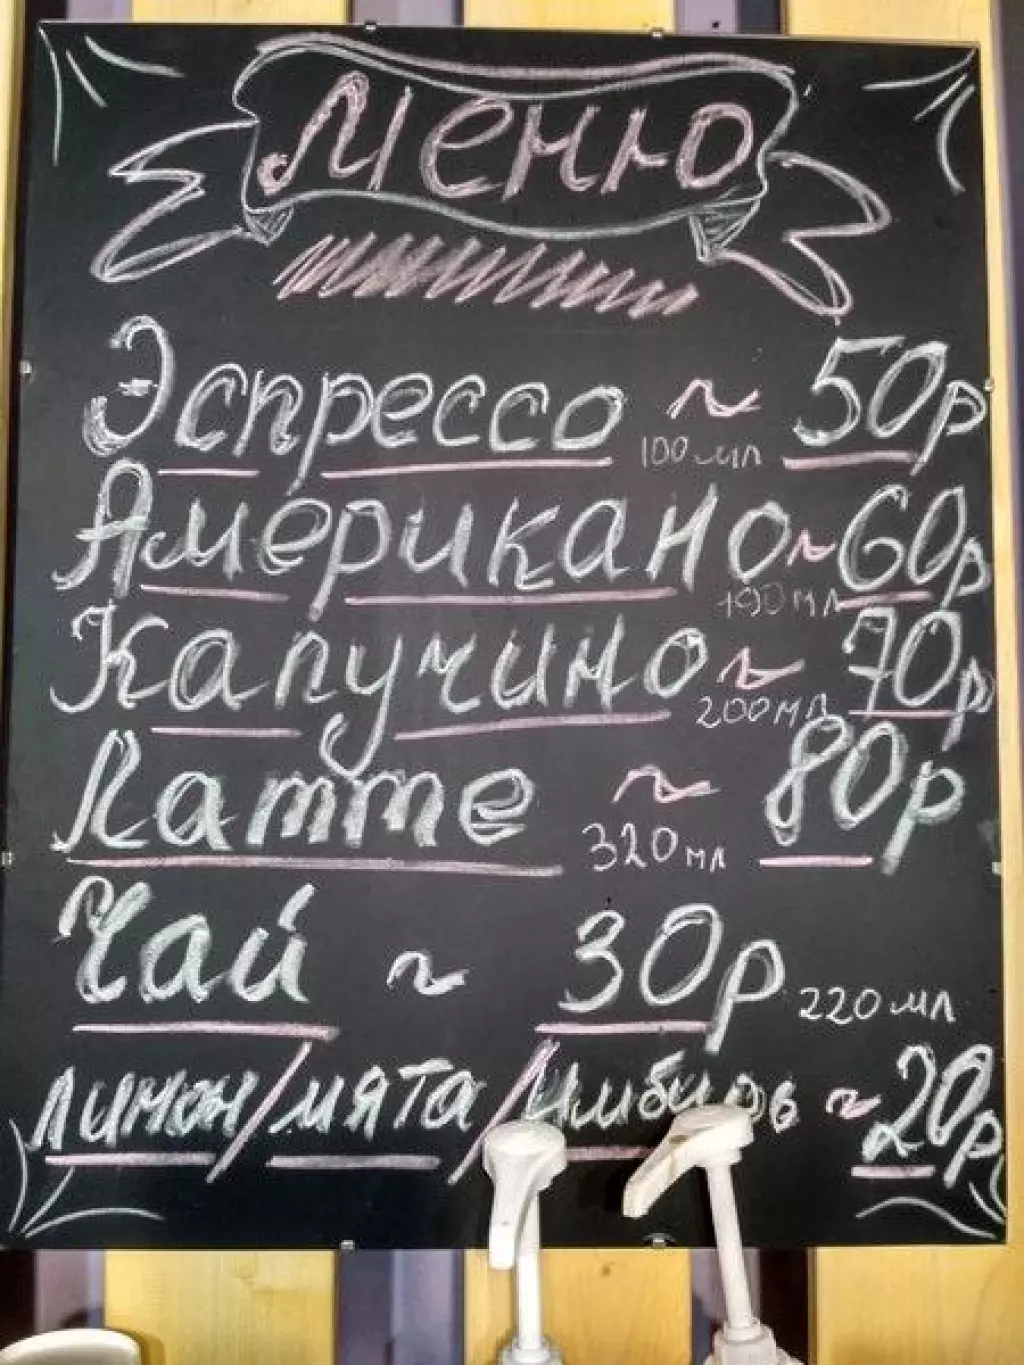 Меню
Эспрессо ~ 50р
100мл
Американо ~ 60р
190мл
Капучино ~ 70р
200мл
Латте ~ 80р
320мл
Чай ~ 30р 220мл
лимон/мята/имбирь ~ 20р